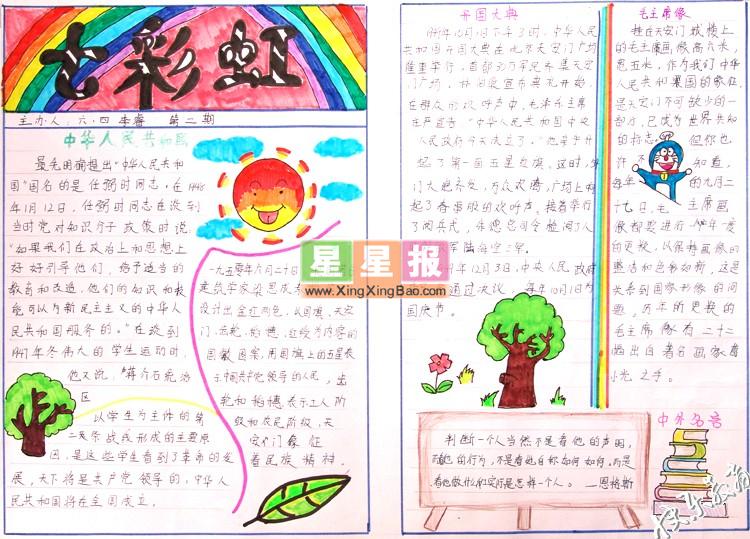 七彩虹
主办人：六.四 李睿 第二期
中华人民共和国
最先明确提出“中华人民共和
国”国名的是任弼时同志，在1948
年1月12日，任弼时同志在谈到
当时党对知识分子政策时说：
“如果我们在政治上和思想上
好好引导他们，给予适当的
教育和改造，他们的知识和技
能可以为新民主主义的中华人
民共和国服务的。”在谈到
1947年冬伟大的学生运动时，
他又说，“蒋介石统治
区
以学生为主体的第
二条战线形成的主要原
因，是这些学生看到了革命的发
展，天下将是共产党领导的，中华人
民共和国将在全国成立。
一九五零年六月二十日
建筑学家梁思成
设计出金红两色，以国旗、天安
门、齿轮、稻穗、红绶为内容的
国徽图案，用国旗上的五星表
示中国共产党领导的人民，齿
轮和稻穗表示工人阶
级和农民阶级，天
安门像征
着民族精神。
开国大典
1949年10月1日下午3时，中华人民
共和国开国大典在北京天安门广场
隆重举行，首都30万军民齐集天安
门广场，开国典宣布典礼开始，
在群众的欢呼声中，毛泽东主席
在庄严宣告：“中华人民共和国中央
人民政府今天成立了。”
起了第一面五星红旗。这时，
门大炮齐发，万众欢腾，广场上响
起了春雷般的欢呼声。接着举行
了阅兵式，朱德总司令检阅了人
军陆海空三军。
年12月3日，中央人民政府
通过决议，每年10月1日为
国庆节。
毛主席像
挂在天安门城楼上
的毛主席画像高六米，
宽五米，作为我们中华
人民共和国的象征，
是天安门不可缺少的一
部分，已成为世界共知
的标志。但你也
许不知道，
每年的九月二
十七日，毛主席画
像都要进行一年一度
的更换，以保持画像的
整洁和色彩如新，这是
关系到国家形像的问
题，历年所更换的
毛主席像有二十二
幅出自著名画家葛
小光之手。
中外名言
判断一个人当然不是看他的声明，
而看他的行为，不是看他自称如何如何，而是
看他做什么和实际是怎样一个人。 —恩格斯
星星报
www.XingXingBao.com